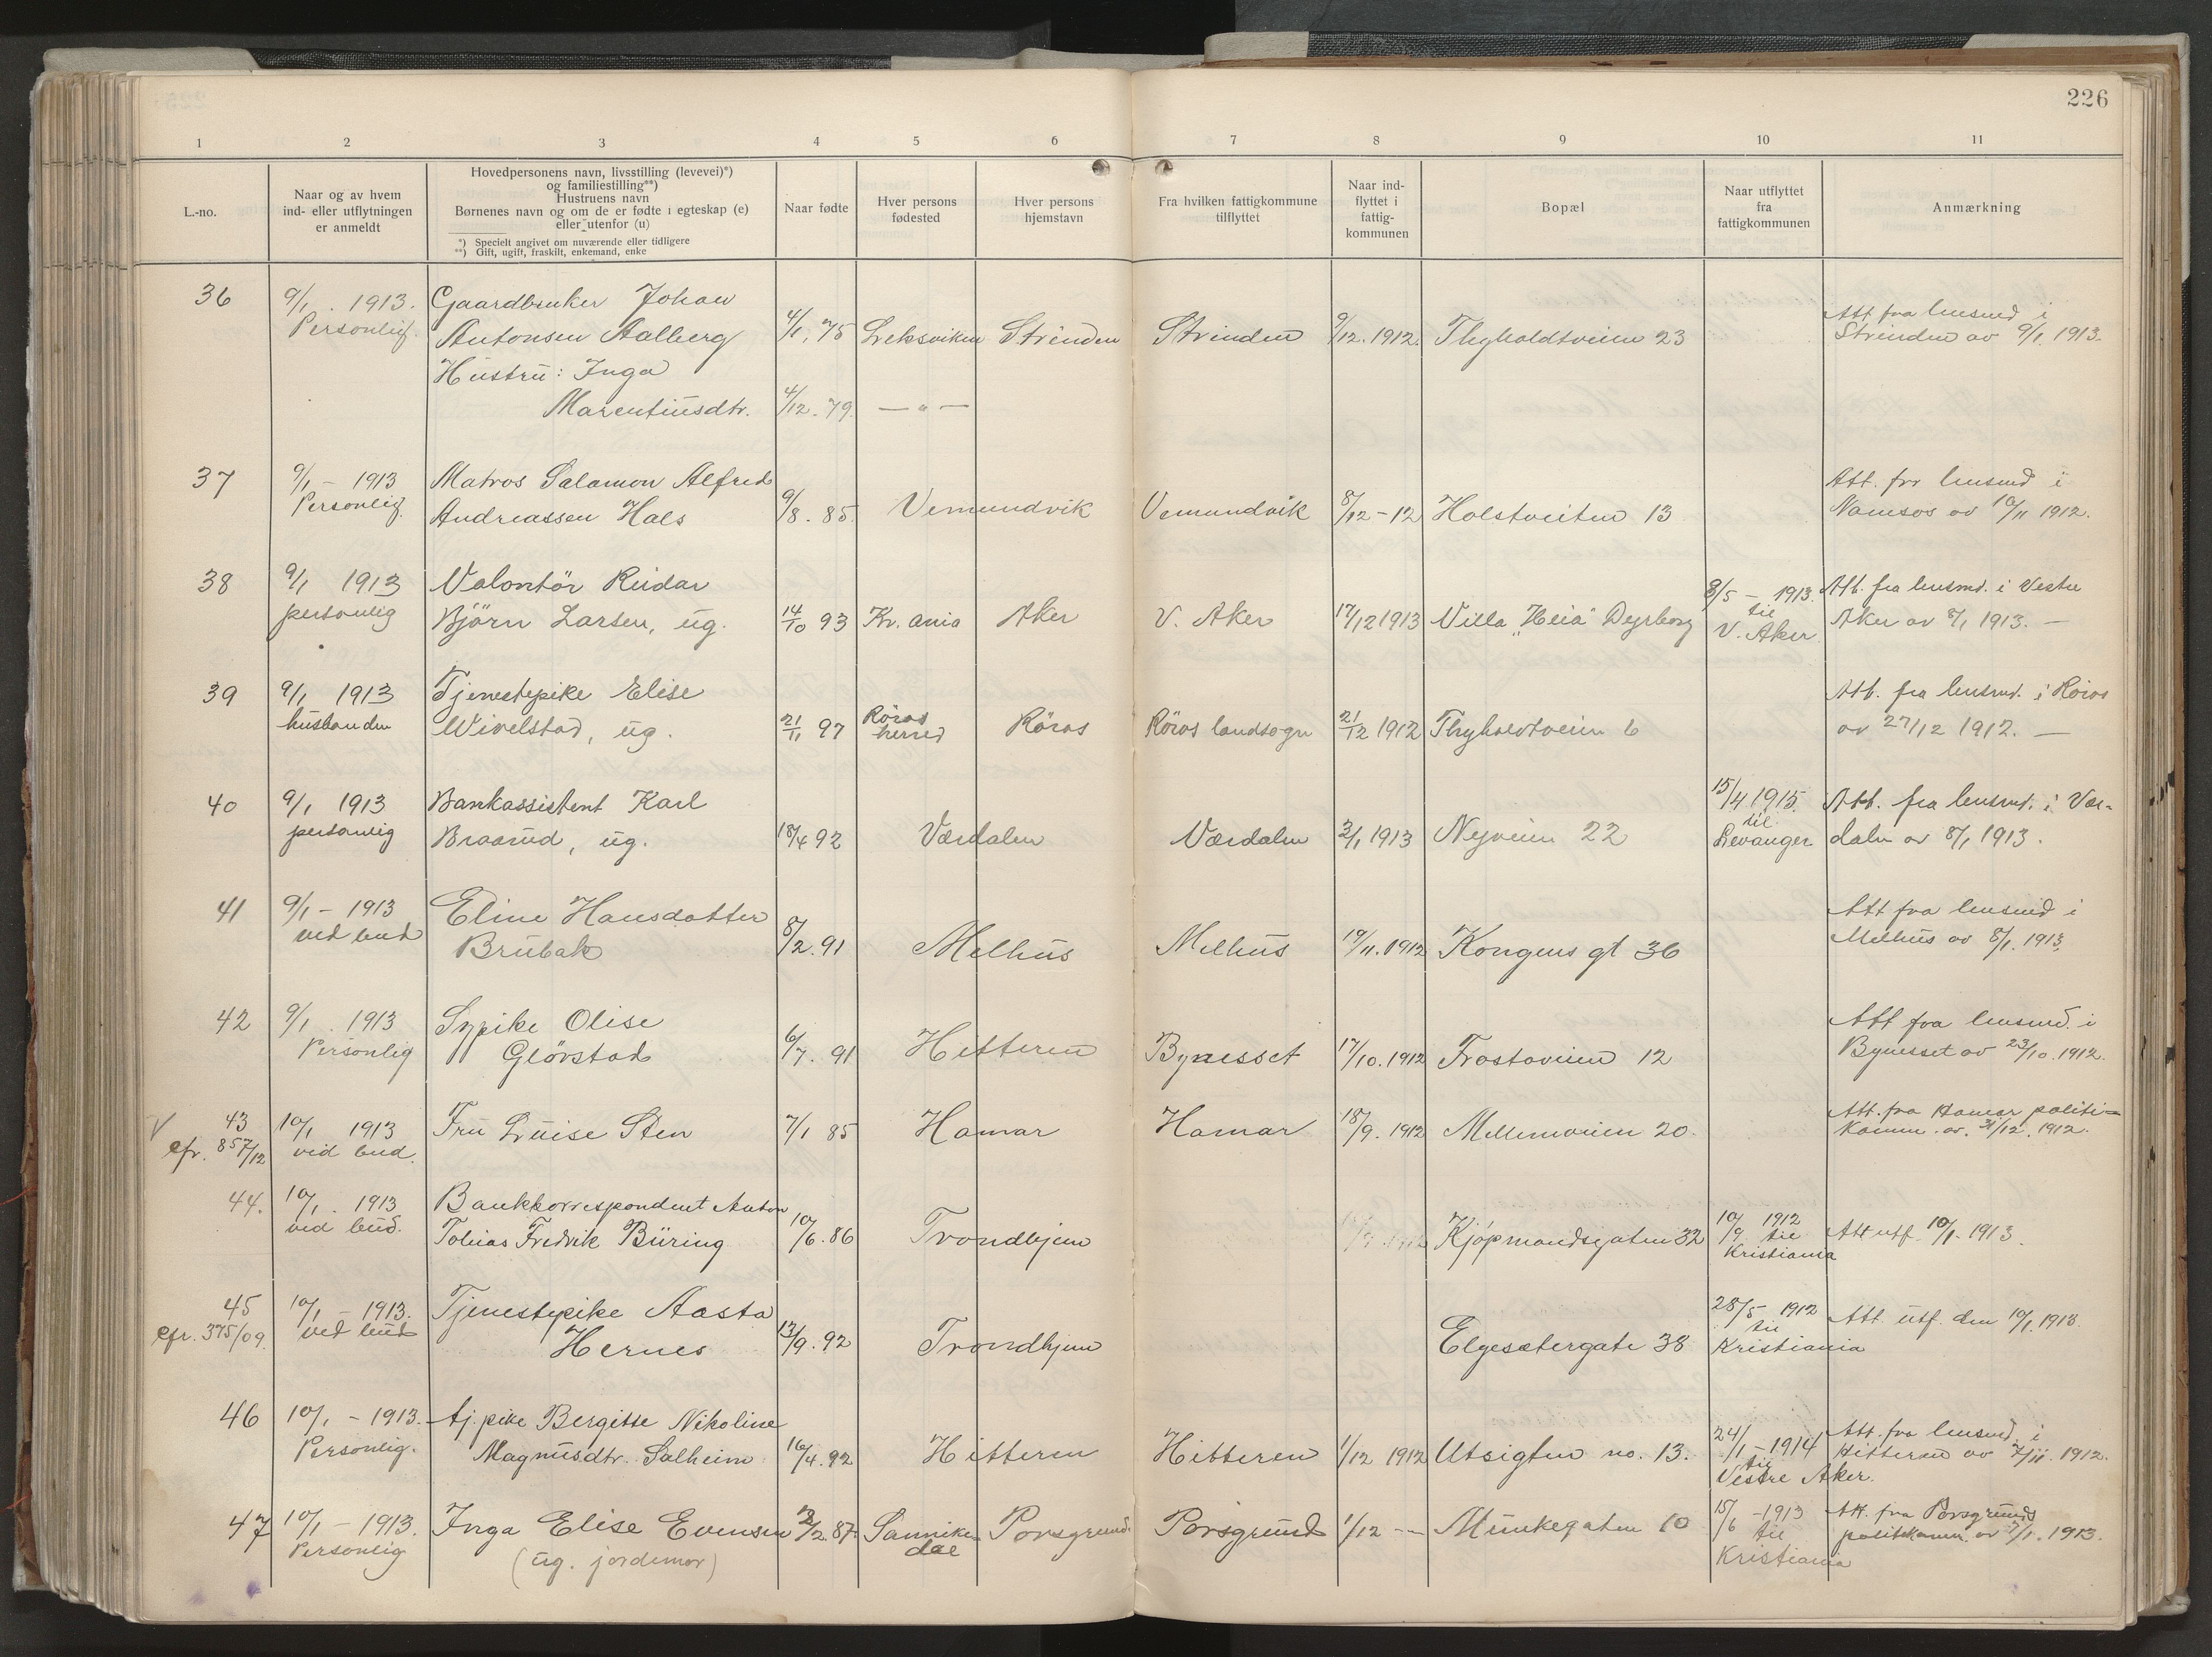 226
1 2 3 4 5 6 7 8 9 10 11
L.-no.
Naar og av hvem
ind- eller utflytningen
er anmeldt
Hovedpersonens navn, livsstilling (levevei)*)
og familiestilling**)
Hustruens navn
Børnenes navn og om de er fødte i egteskap (e)
eller utenfor (u)
*) Specielt angivet om nuværende eller tidligere
**) Gift, ugift, fraskilt, enkemand, enke
Naar fødte
Hver persons
fødested
Hver persons
hjemstavn
Fra hvilken fattigkommune
tilflyttet
Naar ind-
flyttet i
fattig-
kommunen
Bopæl
Naar utflyttet
fra
fattigkommunen
Anmærkning
36 9/1. 1913. Gaardbruker Johan
Personlig. Antonsen Aalberg 4/1. 75 Leksviken Strinden Strinden 9/12. 1912. Thyholdtveien 23 Att fra lensmd i
Strinden av 9/1. 1913.
Hustru: Inga
Marentiusdtr. 4/12. 79. — " —
37 9/1 - 1913 Matros Salamon Alfred
Personlig. Andreassen Hals 9/8. 85. Vemundvik Vemundvik 8/12 - 12 Holstveiten 13 Att. fra lensmd i
Namsos av 10/11 1912.
38 9/1 1913 Volontör Reidar
personlig Björn Larsen, ug. 14/10 93 Kr.ania Aker V. Aker 17/12 1913 Villa "Heia" Dyrborg 3/5 - 1913.
til
V. Aker Att. fra lensmd. i Vestre
Aker av 8/1 1913. —
39 9/1 1913 Tjenestepike Elise
husbonden Wivelstad, ug. 21/11 97 Röros
herred Röros Röros landsogn 21/12 1912 Thyholdtveien 6 Att. fra lensmd. i Röros
av 27/12 1912. —
40 9/1 1913 Bankassistent Karl
personlig Braarud, ug. 18/4 92 Værdalen Værdalen 3/1 1913 Nyveien 22 15/4 1915.
til
Levanger Att. fra lensmd. i Vær-
dalen av 8/1 1913.
41 9/1 - 1913 Eline Hansdatter
ved bud Brubak 8/2. 91 Melhus Melhus 19/11. 1912 Kongens gt 36 Att fra lensmd i
Melhus av 8/1. 1913.
42 9/1. 1913 Sypike Olise
Personlig Glörstad 6/7. 91 Hitteren Bynesset 17/10. 1912 Frostaveien 12 Att fra lensmd. i
Bynesset av 23/10. 1912.
V 43 10/1 1913 Fru Luise Sten 7/1 85 Hamar Hamar 18/9. 1912 Mellemveien 20. Att. fra Hamar politi-
cfr. 857/12 vid bud. kamm. av. 31/12. 1912.
44. 10/1. 1913 Bankkorrespondent Anton
ved bud. Tobias Fredrik Büring 10/6. 86 Trondhjem Kjøpmandsgaten 32 10/9 1912
til
Kristiania Att utf. 10/1. 1913.
45 10/1 - 1913. Tjenestepike Aasta
cfr. 375/09. ved bud Hernes 13/9. 92 Trondhjem Elgesætergate 38 28/5 1912
til
Kristiania Att. utf. den 10/1. 1913.
46 10/1 - 1913. tj.pike Bergitte Nikoline
Personlig. Magnusdtr. Salheim 16/4. 92 Hitteren Hitteren 1/12 1912 Utsigten no. 13. 24/1 - 1914
til
Vestre Aker. Att. fra lensmd. i
Hitteren av 7/11. 1912.
47 10/1 - 1913. Inga Elise Evensen 2/2. 87. Sannike-
dal Porsgrund. Porsgrund 1/12 -- Munkegaten 10 15/6 - 1913
til
Kristiania Att. fra Porsgrunds
politikamm. av 7/1. 1913.
Personlig (ug. jordmor)